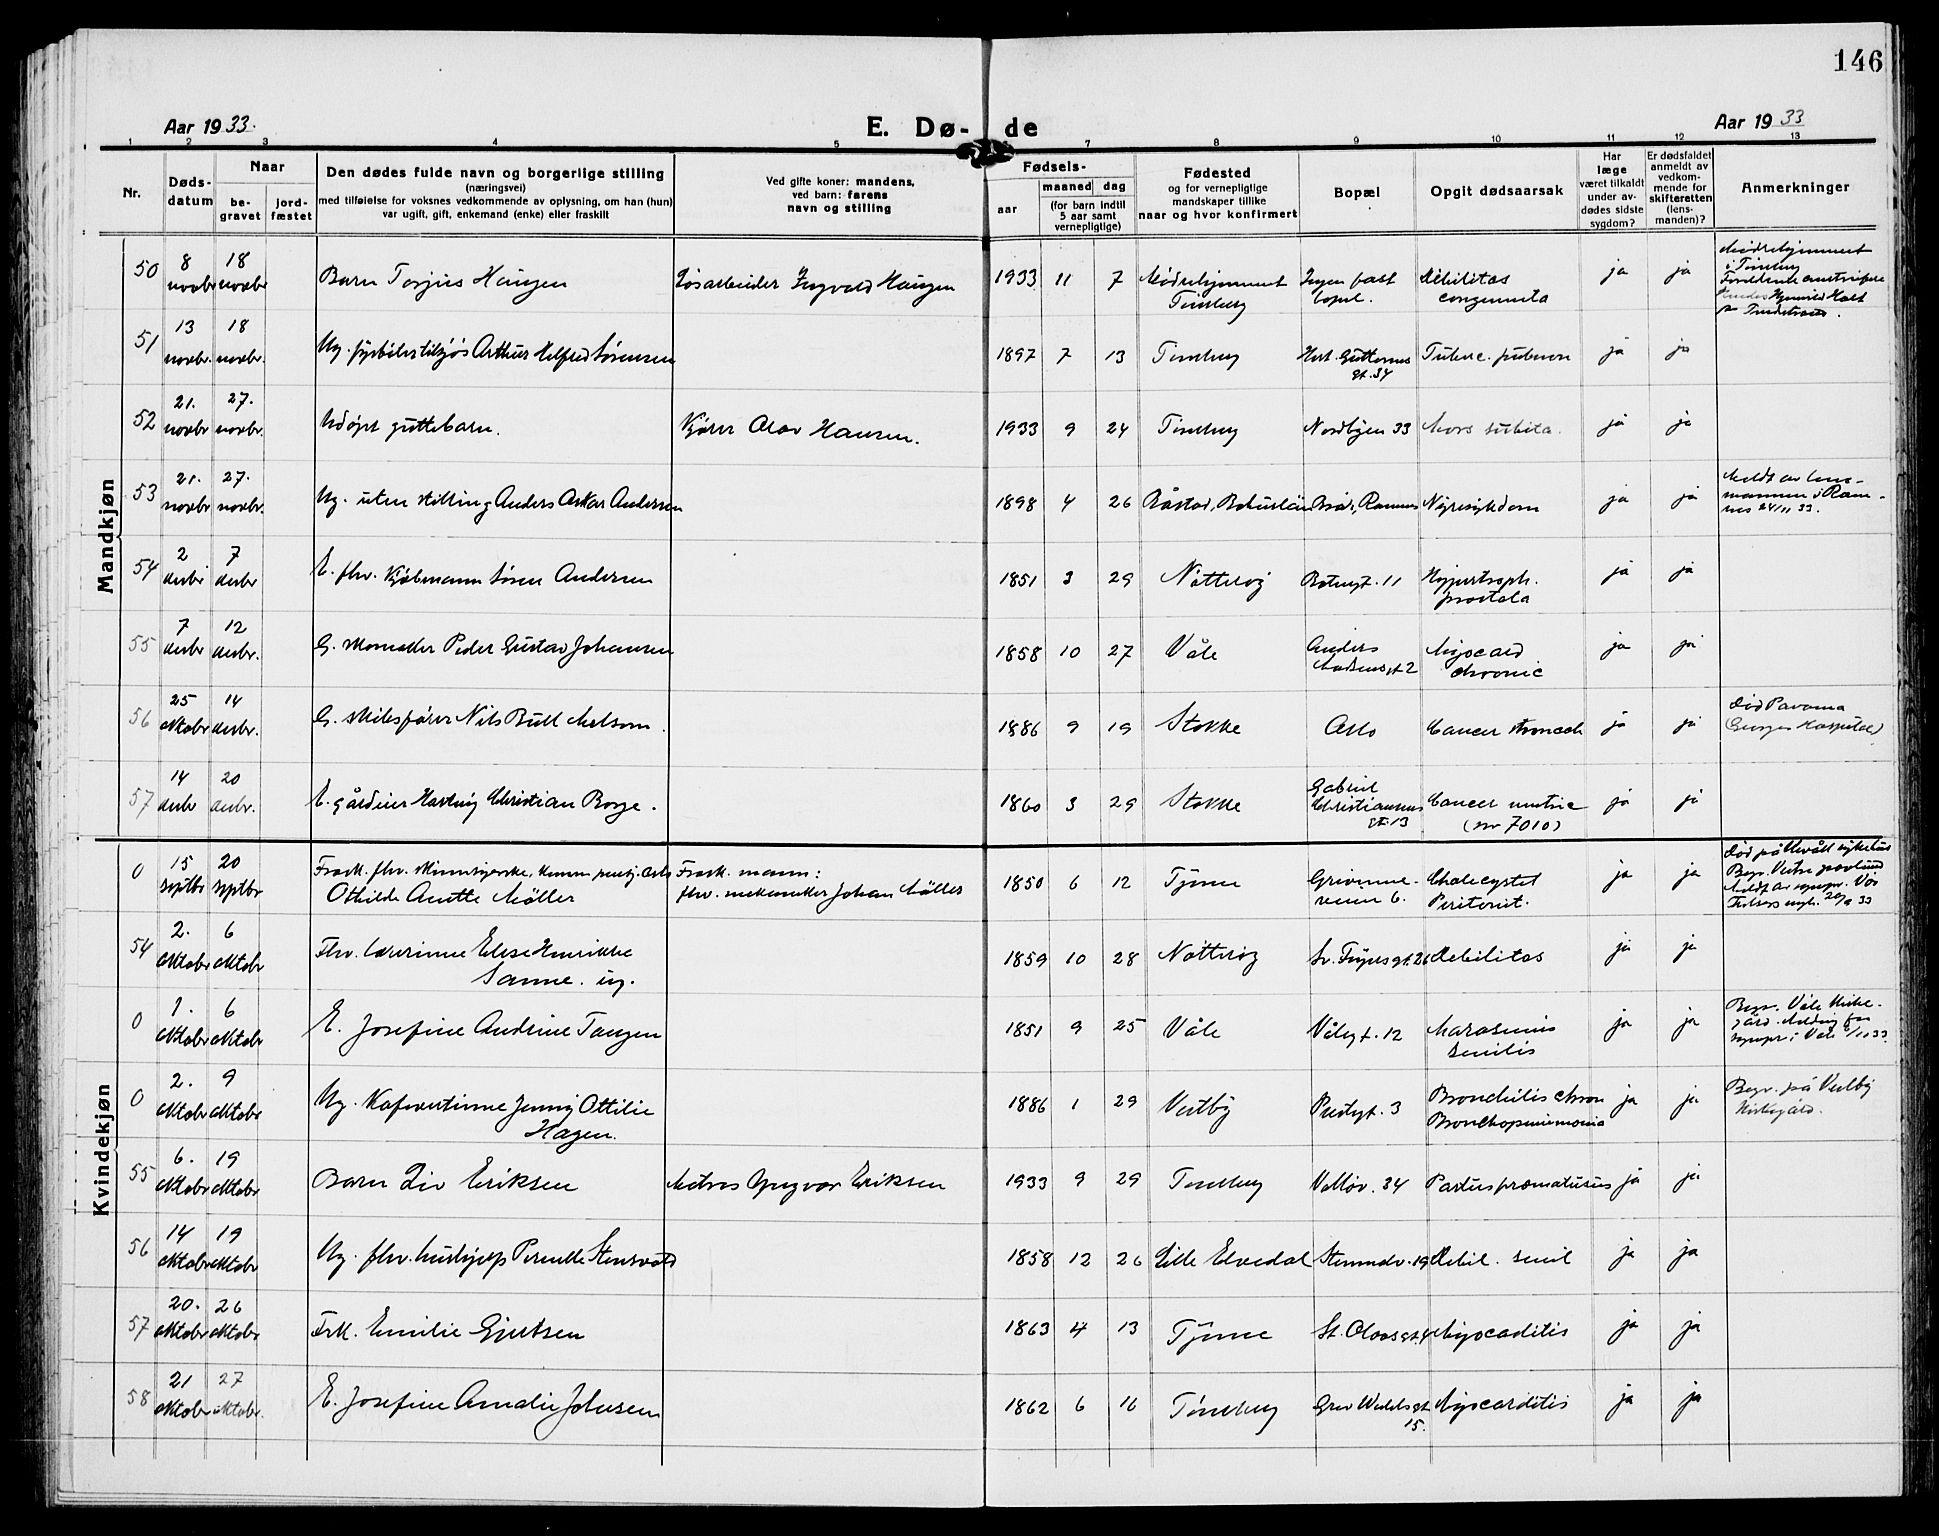 146
Aar 1933.
E. Dø- de
Aar 1933
1 2 3 4 5 7 8 9 10 11 12 13
Nr.
Døds-datum
Naar
be-gravet
jord-fæstet
Den dødes fulde navn og borgerlige stilling
(næringsvei)
med tilføielse for voksnes vedkommende av oplysning, om han (hun)
var ugift, gift, enkemand (enke) eller fraskilt
Ved gifte koner: mandens,
ved barn: farens
navn og stilling
Fødsels-
aar
maaned dag
(for barn indtil
5 aar samt
vernepligtige)
Fødested
og for vernepligtige
mandskaper tillike
naar og hvor konfirmert
Bopæl
Opgit dødsaarsak
Har
læge
været tilkaldt
under av-
dødes sidste
sygdom?
Er dødsfaldet
anmeldt av
vedkom-
mende for
skifteretten
(lens-
manden)?
Anmerkninger
Mandkjøn
50 8 novbr 18 novbr Barn Torjus Haugen Løsarbeider Ingvald Haugen 1933 11 7 Mødrehjemmet Tønsberg Ingen fast bopel. Debilitas congenita ja ja Mødrehjemmet i Tønsberg
51 13 novbr. 18 novbr. Ug. fyrbøter tilsjøs Arthur Alfred Sørensen 1897 7 13 Tønsberg Hert. Guttorms gt. 34 Tuberc. pulmon ja ja
52 21. novbr 27. novbr. Udøpt guttebarn. Kjører Olav Hansen. 1933 9 24 Tønsberg Nordbyen 33 Mors subita. ja ja
53 21. novbr 27. novbr. Ug. uten stilling Anders Oskar Andersen 1898 4 26 Båstad, Bohuslän Ramnes Nyresykdom ja ja Meldt av lens-
mannen i Ram-
nes 24/11 33.
54 2 desbr 7 desbr E. fhv. Kjøbmann Søren Andersen 1851 3 29 Nøtterøy 11 Hypertroph. prostata ja ja
55 7 desbr 12 desbr. G. skomaker Peder Gustav Johansen 1858 10 27 Våle Anders Madsens gt 2 Myocard chronic ja ja
56 25 oktobr 14 desbr. G. skibsfører Nils Bull Melsom. 1886 9 19 Stokke Oslo Cancer stomach ja ja Død Panama
(Gorgas Hospital)
57 14 desbr 20 desbr. E. gårdeier Hartvig Christian Borge. 1860 3 29 Stokke Gabriel Christiansens gt. 13 Cancer (nr 7010) ja ja
Kvindekjøn
0 15 septbr 20 septbr Frask. fhv. Othilde Anette Møller Frask. mann:
fhv. Johan Møller 1850 6 12 Tjøme 6. Cholecystit Peritonit. ja ja Død på Ullevål sykehus
54 2. oktobr 6 oktobr Fhv. lærerinne Elise Henrikke
Sanne. ug. 1859 10 28 Nøtterøy Sv. Foyns gt. 26 Debilitas ja ja
0 1. oktobr 6 oktobr E. Josefine Andrine Tangen 1851 9 25 Våle Vålegt. 12 Marasmus senilis ja ja Begr. Våle kirke-
gård. Melding fra
sognepr. i Våle
0 2. oktobr 9 oktobr Ug. Kafevertinne Jenny Ottilie
Hagen. 1886 1 29 Vestby Prestgt. 3 Bronchitis chron
Bronchopneumonia ja ja Begr. på Vestby
kirkegård.
55 6. oktobr 19 oktobr Barn Liv Eriksen Matros Yngvar Eriksen 1933 9 29 Tønsberg Velløv. 34 Partus præmaturus ja ja
56 14 oktobr 19 oktobr Ug. fhv. hushjelp Pernille Stensvold 1858 12 26 Lille Elvedal 19 Debil. senil ja ja
57 20. oktobr 26 oktobr Frk. Emilie Gjertsen 1863 4 13 Tjøme St. Olavs gt. Myocarditis ja ja
58 21 oktobr 27 oktobr. E. Josefine Amalie Johnsen 1862 6 16 Tønsberg Grev Wedels gt 15. Myocarditis ja ja